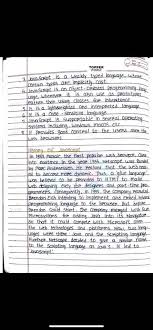 TOPPER
3. JavaScript is a weakly typed language, where
certain types are implicitly cast.
4. JavaScript is an object-oriented programming lang-
uage, wherever it is also use as prototypes
rather than using classes for inheritance.
5. It is a lightweighted and interpreted language.
6. It is a case-sensitive language.
7. JavaScript is supportable in several operating
systems including, windows, macOS, etc.
8. It provides good control to the users over the
web browsers.
History of JavaScript
In 1993, Mosaic, the first popular web browser, came
into existence. In the year 1994, Netscape was found
by Marc Andreessen. He realized that the web need
ed to become more dynamic. Thus, a 'glue language'
was believed to be provided to HTML to make
web designing easy for designers and part-time pro-
grammers. Consequently, in 1995, the company recruited
Brendan Eich intending to implement and embed
programming language to the browser. But before
Brendan could start, the company merged with Sun
Microsystems for adding Java into its Navigator
so that it could compete with Microsoft over
the web technologies and platforms. Now, two lang-
uages were there: Java and the scripting language.
Further, Netscape decided to give a similar name
to the scripting language as Java's. It led to
'Javascript'.